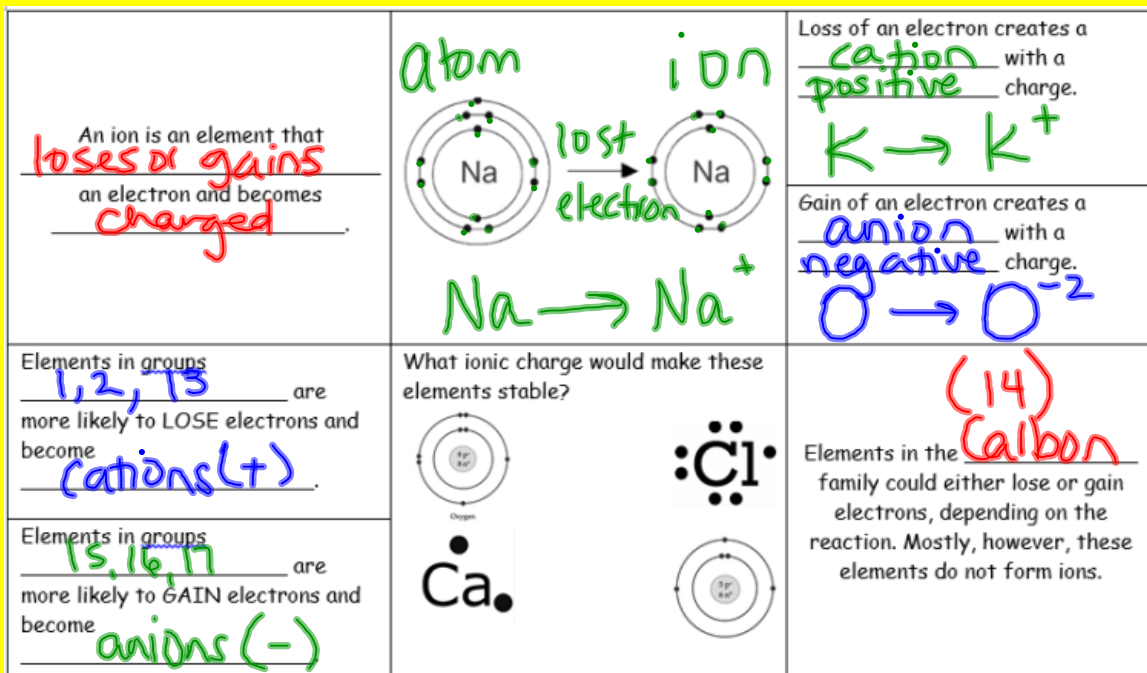 An ion is an element that
loses or gains
an electron and becomes
charged.
atom ion
Na
lost
electron
Na
Na → Na+
Loss of an electron creates a
cation with a
positive charge.
K → K+
Gain of an electron creates a
anion with a
negative charge.
O → O-2
Elements in groups
1, 2, 13 are
more likely to LOSE electrons and
become
cations (+).
Elements in groups
15, 16, 17 are
more likely to GAIN electrons and
become
anions (-).
What ionic charge would make these
elements stable?
8 p+
8 n°
Oxygen
Cl
Ca
5 p+
6 n°
(14)
Elements in the Carbon
family could either lose or gain
electrons, depending on the
reaction. Mostly, however, these
elements do not form ions.